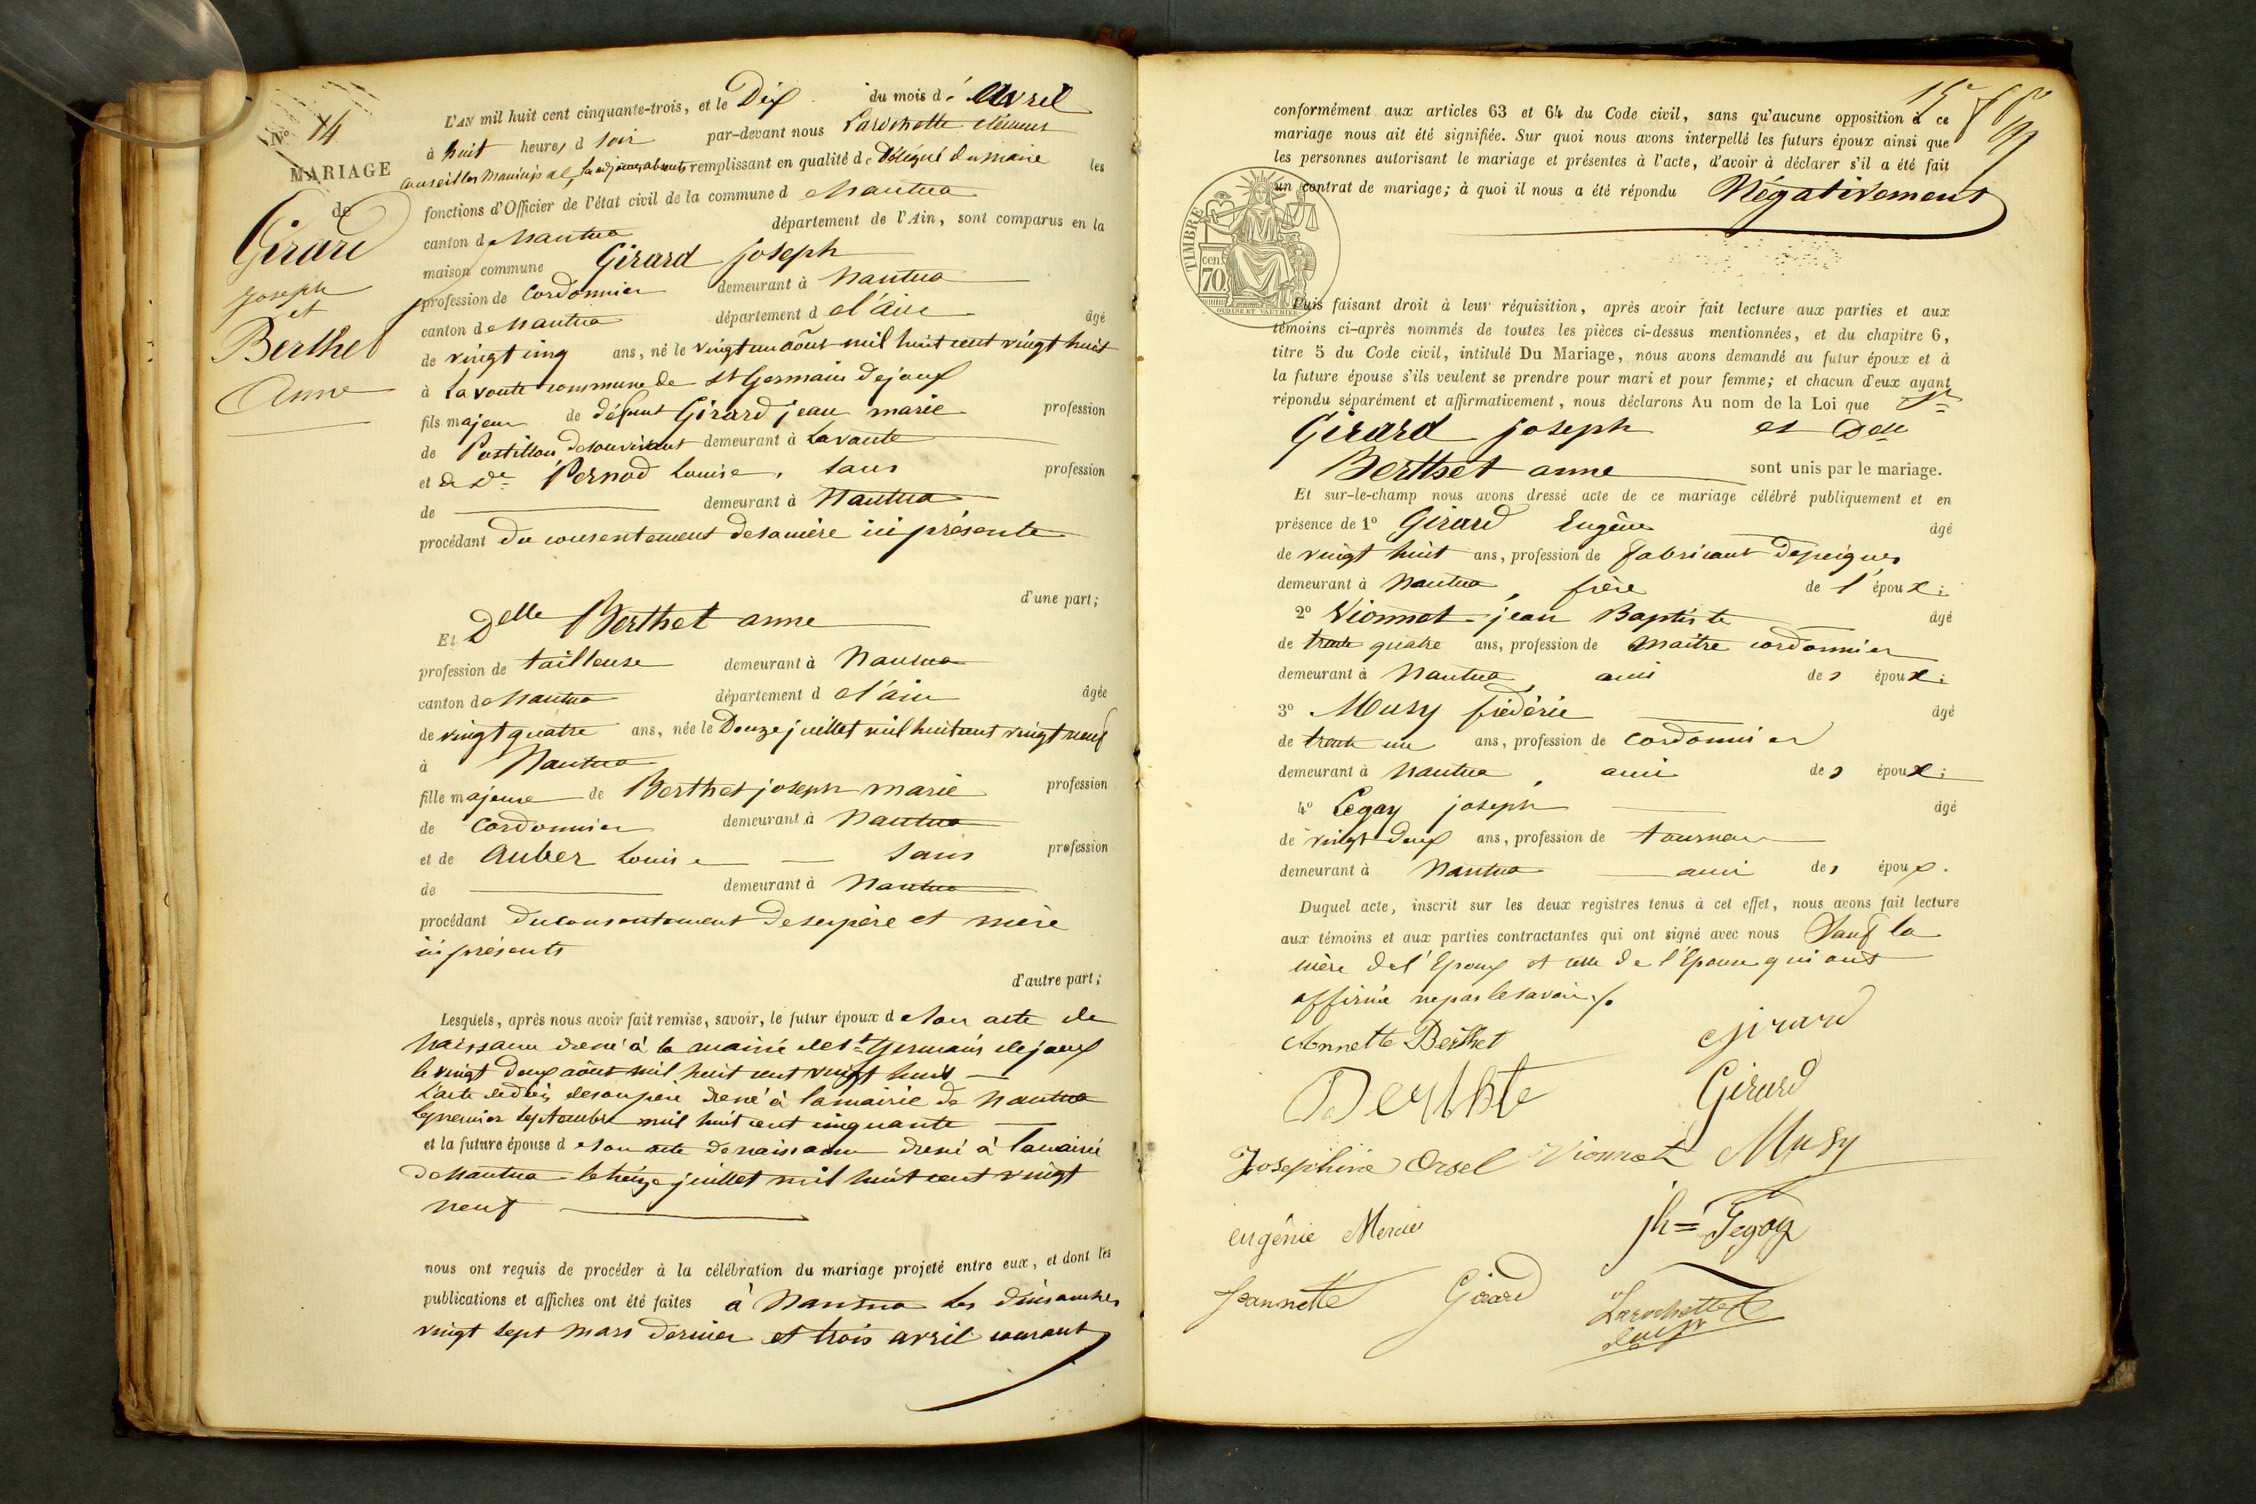 N° 14
MARIAGE
de
Girard
Joseph
et
Berthet
Anne
L'AN mil huit cent cinquante-trois, et le Dix du mois d'Avril
à huit heures d soir par-devant nous Larochette Clément
Conseiller Municipal, les adjoints absents remplissant en qualité de Délégué du maire les
fonctions d'Officier de l'état civil de la commune de Nantua
canton de Nantua département de l'Ain, sont comparus en la
maison commune Girard Joseph
profession de Cordonnier demeurant à Nantua
canton de Nantua département de l'Ain âgé
de vingt cinq ans, né le vingt un août mil huit cent vingt huit
à Lavoute commune de St Germain de joux
fils majeur de défunt Girard jean marie profession
de Postillon de son vivant demeurant à Lavoute
et de De Pernod Louise, sans profession
de demeurant à Nantua
procédant du consentement de sa mère ici présente
d'une part;
Et Delle Berthet anne
profession de tailleuse demeurant à Nantua
canton de Nantua département de l'ain âgée
de vingt quatre ans, née le Douze juillet mil huit cent vingt neuf
à Nantua
fille majeure de Berthet joseph marie profession
de Cordonnier demeurant à Nantua
et de Auber Louise sans profession
de demeurant à Nantua
procédant du consentement de ses père et mère
ici présents
d'autre part;
Lesquels, après nous avoir fait remise, savoir, le futur époux de son acte de
naissance dressé à la mairie de St Germain de joux
le vingt deux août mil huit cent vingt huit
L'acte de décès de son père dressé à la mairie de Nantua
le premier septembre mil huit cent cinquante
et la future épouse de son acte de naissance dressé à la mairie
de Nantua le treize juillet mil huit cent vingt
neuf
nous ont requis de procéder à la célébration du mariage projeté entre eux, et dont les
publications et affiches ont été faites à Nantua les dimanches
vingt sept mars dernier et trois avril courant
conformément aux articles 63 et 64 du Code civil, sans qu'aucune opposition à ce
mariage nous ait été signifiée. Sur quoi nous avons interpellé les futurs époux ainsi que
les personnes autorisant le mariage et présentes à l'acte, d'avoir à déclarer s'il a été fait
un contrat de mariage; à quoi il nous a été répondu Négativement
TIMBRE
cen.
70
Puis faisant droit à leur réquisition, après avoir fait lecture aux parties et aux
témoins ci-après nommés de toutes les pièces ci-dessus mentionnées, et du chapitre 6,
titre 5 du Code civil, intitulé Du Mariage, nous avons demandé au futur époux et à
la future épouse s'ils veulent se prendre pour mari et pour femme; et chacun d'eux ayant
répondu séparément et affirmativement, nous déclarons Au nom de la Loi que
Girard joseph et Delle
Berthet anne sont unis par le mariage.
Et sur-le-champ nous avons dressé acte de ce mariage célébré publiquement et en
présence de 1° Girard Eugène âgé
de vingt huit ans, profession de fabricant de peignes
demeurant à Nantua, frère de l'époux;
2° Vionnet jean Baptiste âgé
de trente quatre ans, profession de maître cordonnier
demeurant à Nantua, ami des époux;
3° Musy frédéric âgé
de trente un ans, profession de Cordonnier
demeurant à Nantua, ami des époux;
4° Legay joseph âgé
de vingt deux ans, profession de tourneur
demeurant à Nantua ami des époux.
Duquel acte, inscrit sur les deux registres tenus à cet effet, nous avons fait lecture
aux témoins et aux parties contractantes qui ont signé avec nous Sauf la
mère de l'Epoux et celle de l'Epouse qui ont
affirmé ne pas le savoir
Annette Berthet Girard
Berthet Girard
Josephine Orsel Vionnet Musy
eugénie Mercier jh= Legay
Jeannette Girard Larochette